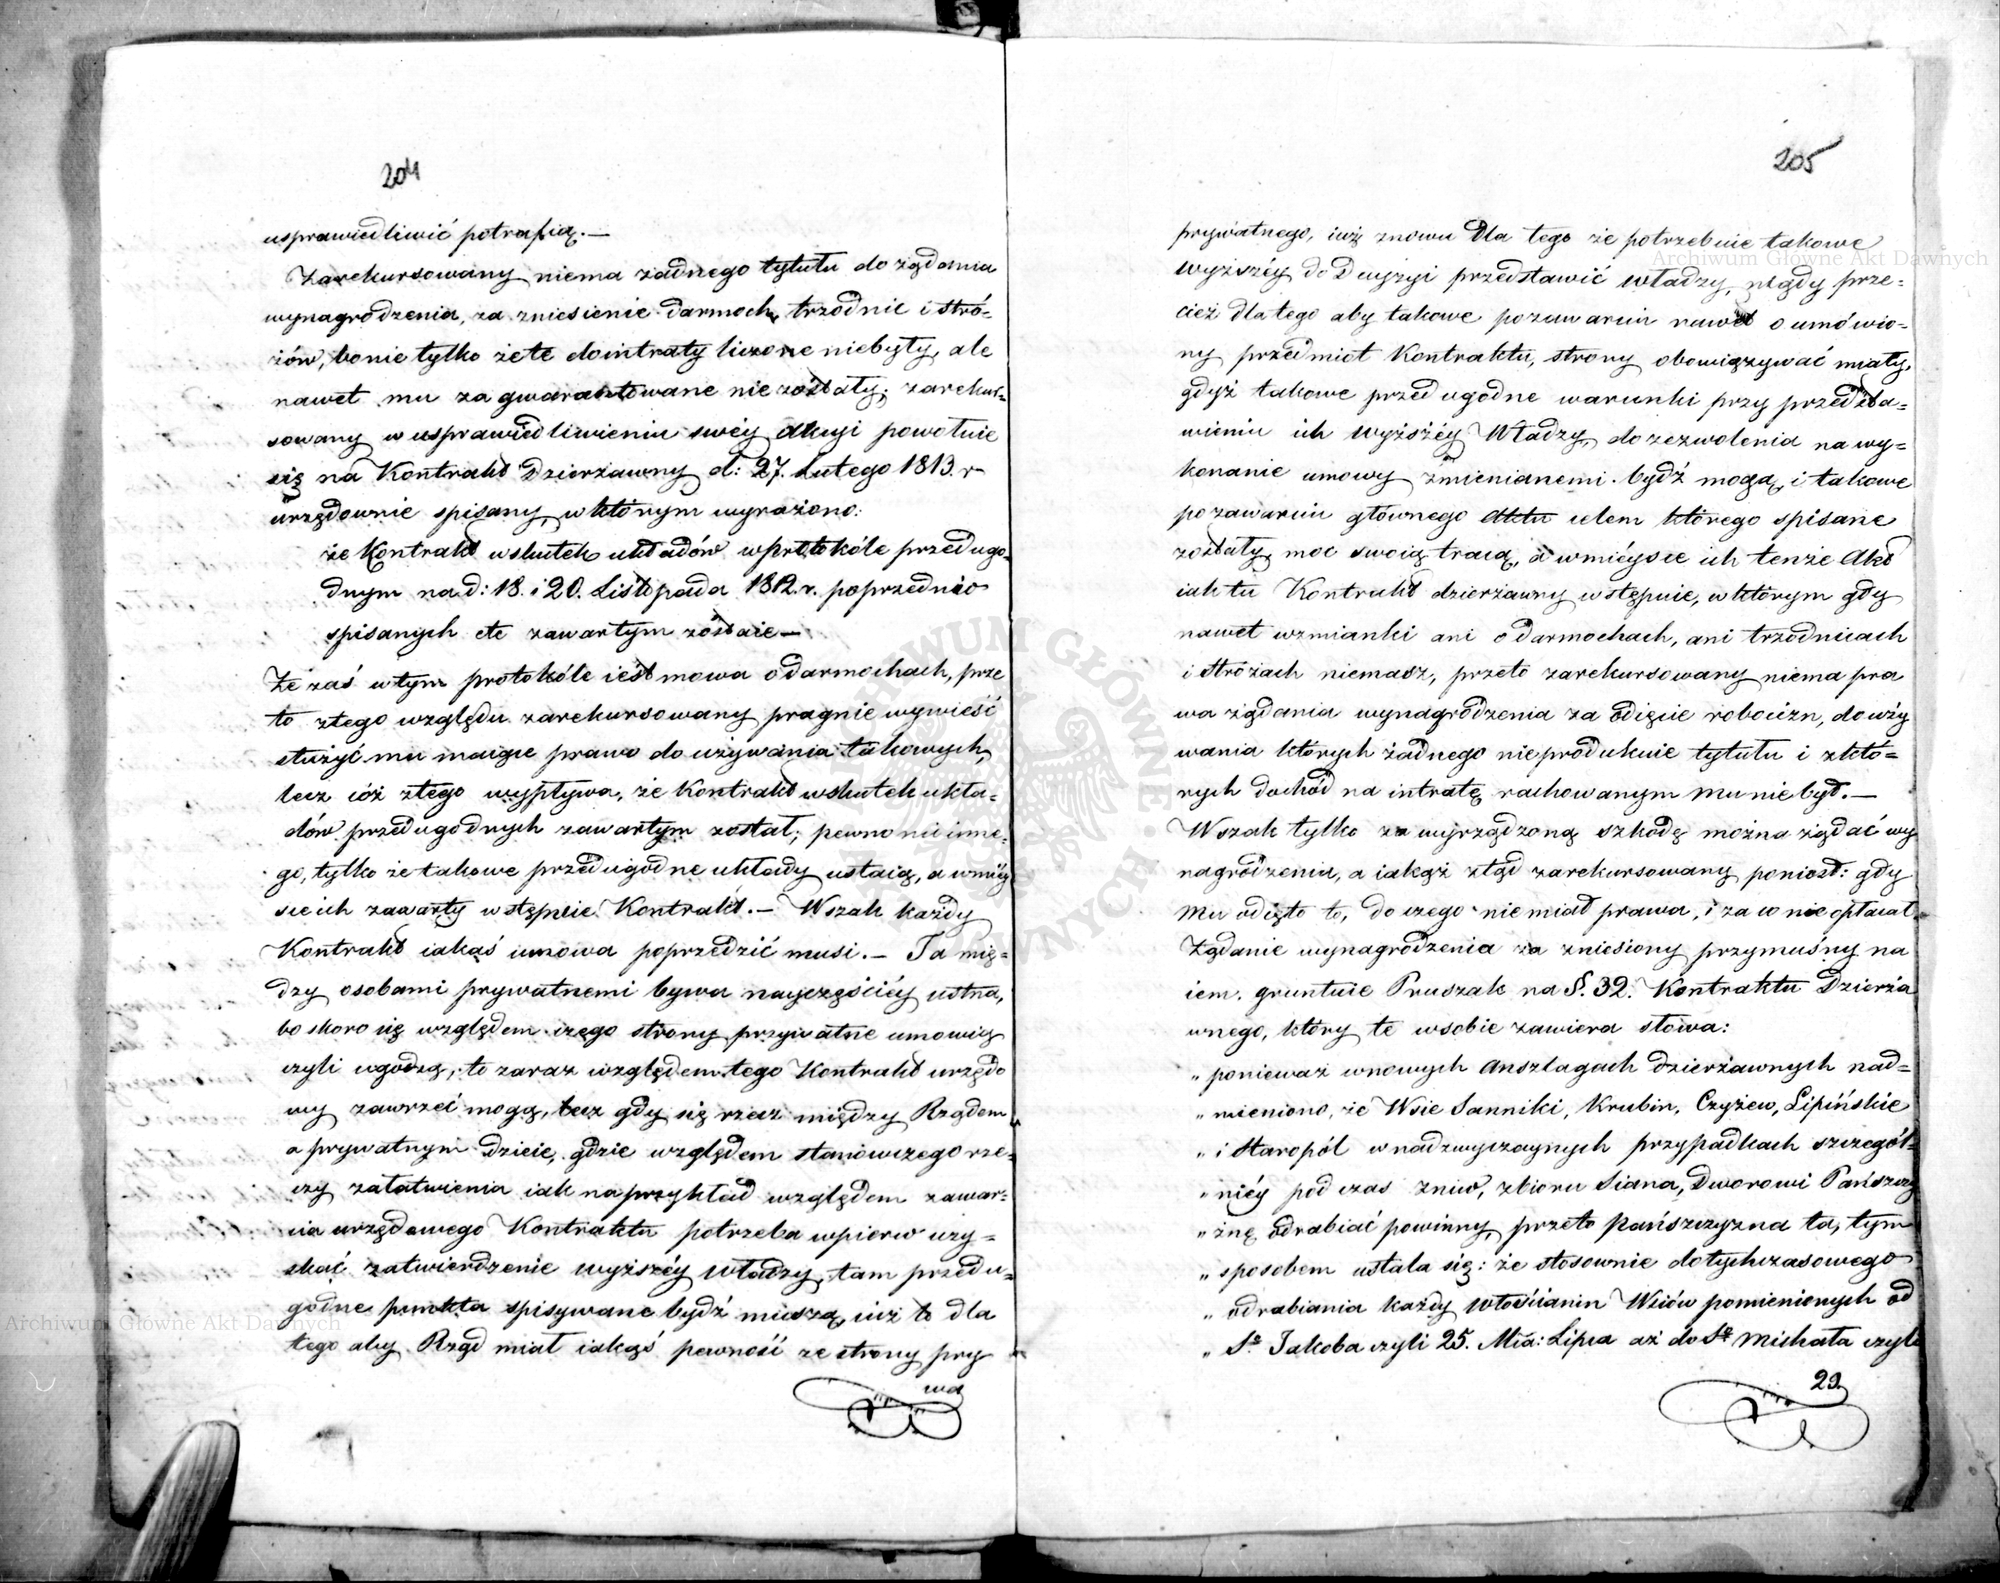 204
usprawiedliwić potrafią. —
Zarekursowany niema żadnego tytułu do żądania
wynagrodzenia, za zniesienie darmoch, trzodnic i stró-
żów, bo nie tylko że te do intraty liczone niebyły, ale
nawet mu zagwarantowane nie zostały; zarekur-
sowany w usprawiedliwieniu swéy akcyi powołuie
się na Kontrakt Dzierżawny d: 27. Lutego 1813. r
urzędownie spisany, w którym wyrażono:
że Kontrakt wskutek układów w protokóle przedugo-
dnym na d: 18. i 20. Listopada 1812. r. poprzednio
spisanych etc zawartym zostaie —
Że zaś w tym protokóle iest mowa o darmochach, prze
to z tego względu zarekursowany pragnie wywieść
służyć mu maiące prawo do używania takowych,
lecz cóż z tego wypływa, że Kontrakt wskutek ukła-
dów przedugodnych zawartym został; pewno nic inne-
go, tylko że takowe przedugodne układy ustaią, a w miéy
sce ich zawarty wstępuie Kontrakt. — Wszak każdy
Kontrakt iakaś umowa poprzedzić musi. — Ta mię-
dzy osobami prywatnemi bywa nayczęściéy ustna,
bo skoro się względem czego strony prywatne umowią
czyli ugodzą, to zaraz względem tego Kontrakt urzędo
wy zawrzeć mogą, lecz gdy się rzecz między Rządem
a prywatnym dzieie, gdzie względem stanowczego rze-
czy załatwienia iak naprzykład względem zawar-
cia urzędowego Kontraktu potrzeba wpierw uzy-
skać zatwierdzenie wyższéy władzy, tam przedu-
godne punkta spisywane bydź muszą, iuż to dla
tego aby Rząd miał iakąś pewność ze strony pry
wa
205
prywatnego, iuż znowu dla tego że potrzebuie takowe
wyższéy do Decyzyi przedstawić władzy, nigdy prze-
cież dla tego aby takowe po zawarciu nawet o umówio-
ny przedmiot Kontraktu, strony obowiązywać miały,
gdyż takowe przedugodne warunki przy przedsta-
wieniu ich wyższéy Władzy, do zezwolenia na wy-
konanie umowy zmienianemi bydź mogą, i takowe
po zawarciu głównego Aktu celem którego spisane
zostały, moc swoią tracą, a w mieysce ich tenże Akt
iak tu Kontrakt dzierżawny wstępuie, w którym gdy
nawet wzmianki ani o darmochach, ani trzodnicach
i stróżach niemasz, przeto zarekursowany niema pra
wa żądania wynagrodzenia za odięcie robocizn, do uży
wania których żadnego nieprodukuie tytułu i z któ-
rych dochód na intratę rachowanym mu nie był. —
Wszak tylko za wyrządzoną szkodę można żądać wy
nagrodzenia, a iakąż ztąd zarekursowany poniosł: gdy
mu odięto to, do czego niemiał prawa, i za co nie opłacał
Żądanie wynagrodzenia za zniesiony przymuśny na
iem. gruntuie Pruszak na §. 32. Kontraktu Dzierża
wnego, który te w sobie zawiera słowa:
„ ponieważ w nowych Anszlagach dzierżawnych nad-
„ mieniono, że Wsie Sanniki, Krubin, Czyżew, Lipińskie
„ i Staropól w nadzwyczaynych przypadkach szczegól-
„ niéy podczas żniw, zbioru Siana, Dworowi Pańszczy
„ znę odrabiać powinny, przeto Pańszczyzna ta, tym
„ sposobem ustala się: że stosownie dotychczasowego
„ odrabiania każdy Włościanin Wsiów pomienionych od
„ So Jakoba czyli 25. Mca: Lipca aż do So Michała czyli
29.
Archiwum Główne Akt Dawnych
Archiwum Główne Akt Dawnych
ARCHIWUM GŁÓWNE · AKT DAWNYCH ·